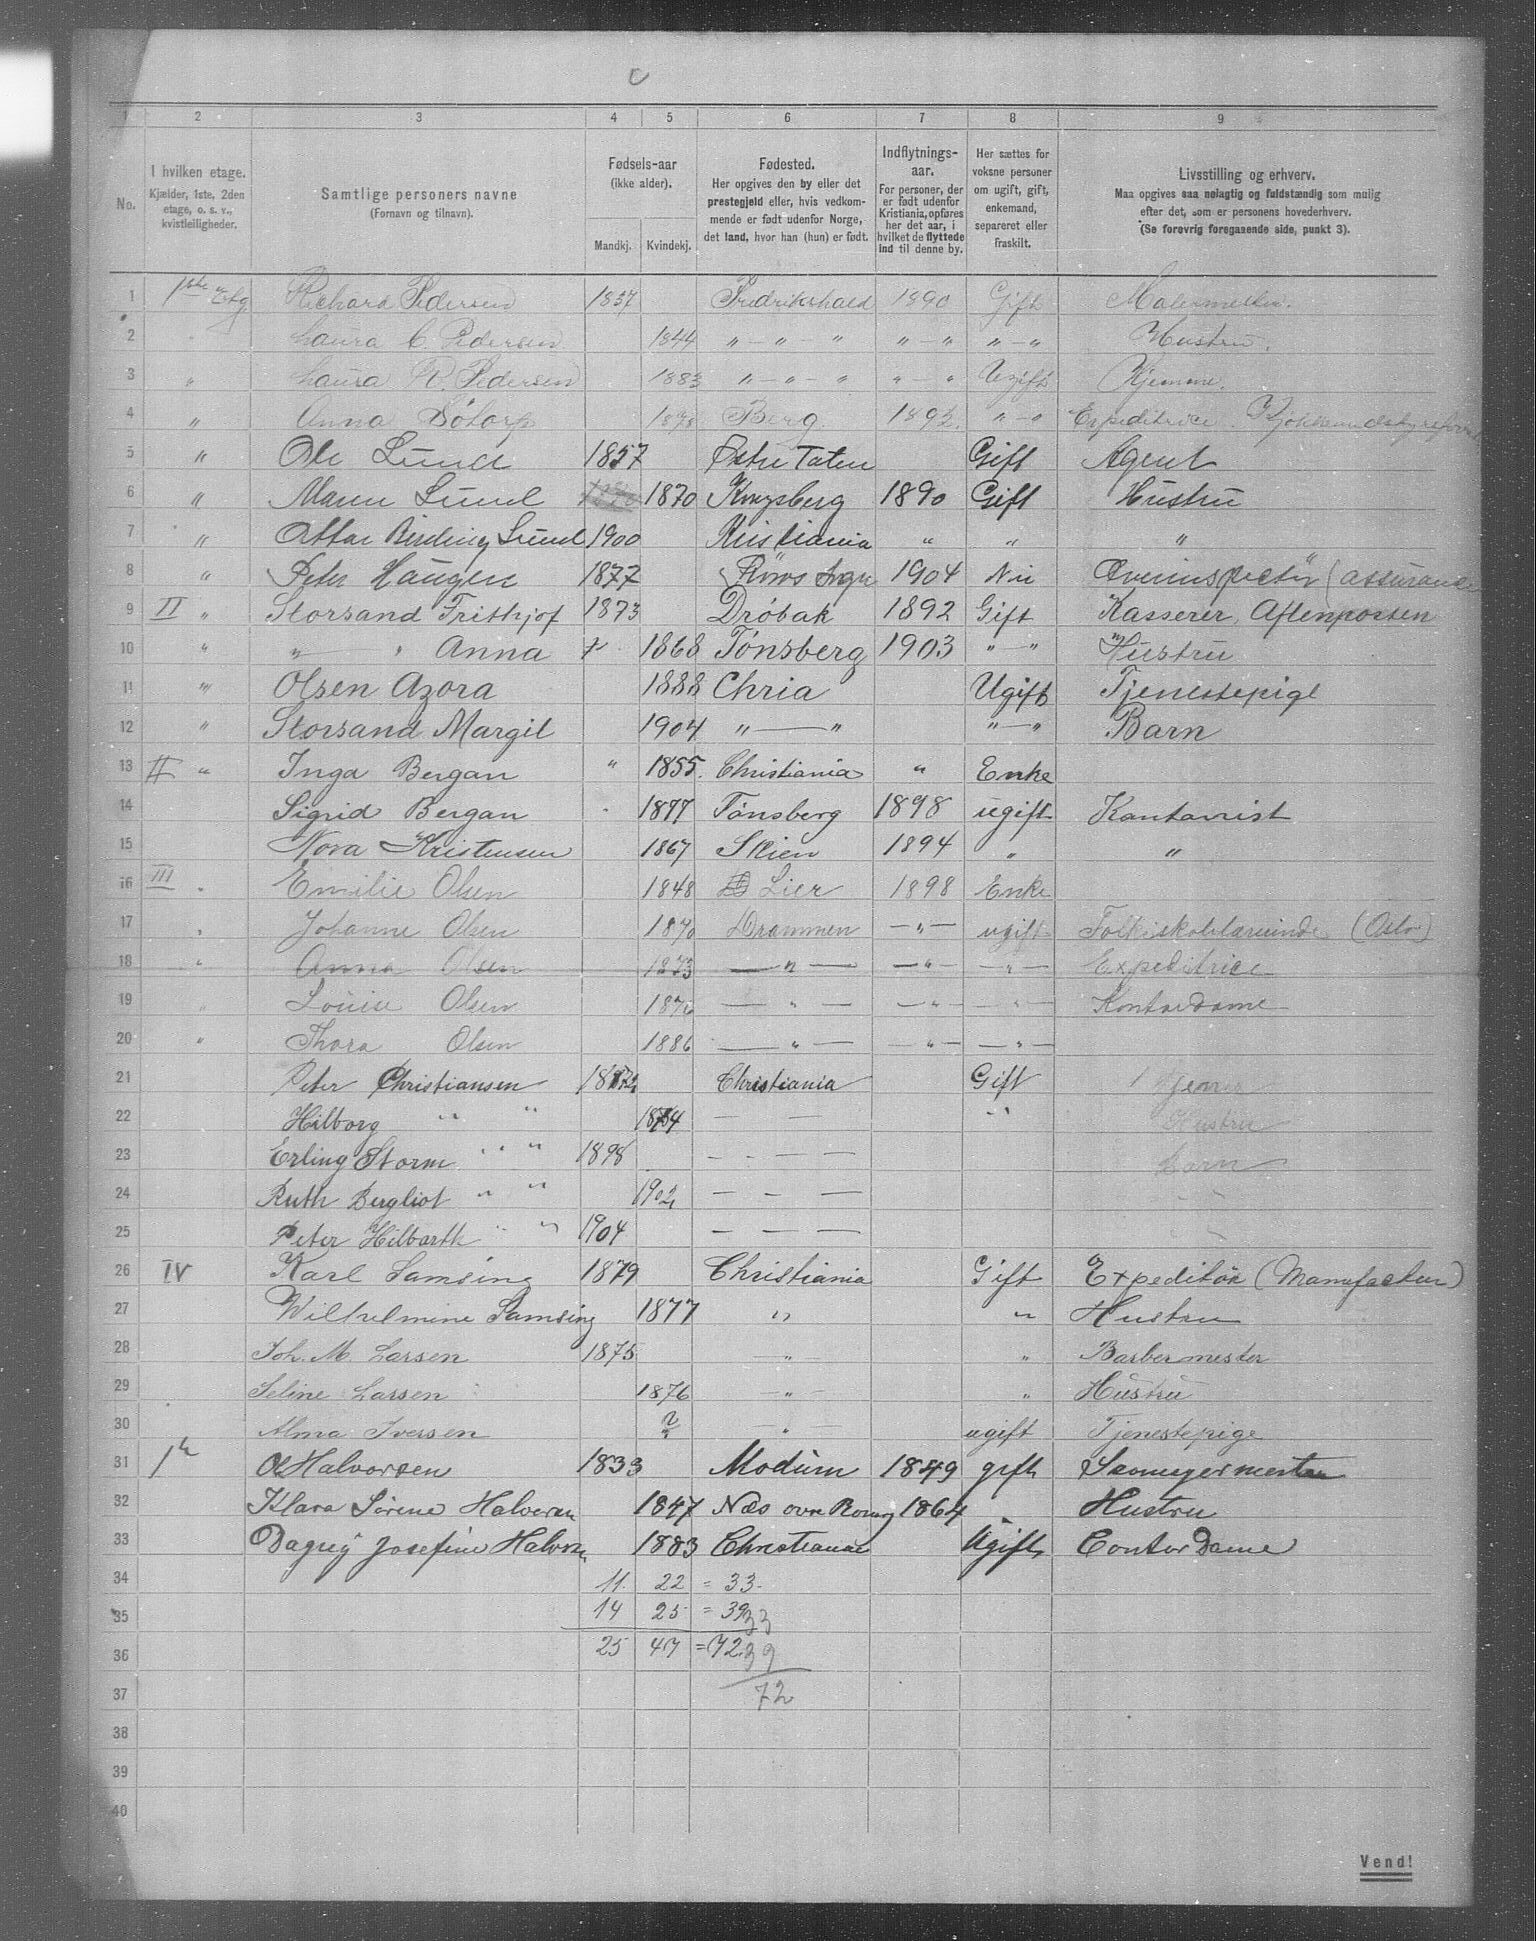 1 2 3 4 5 6 7 8 9
No.
I hvilken etage. Kjælder, 1ste, 2den etage, o. s. v., kvistleiligheder.
Samtlige personers navne (Fornavn og tilnavn).
Fødsels-aar (ikke alder). Mandkj. Kvindekj.
Fødested. Her opgives den by eller det prestegjeld eller, hvis vedkommende er født udenfor Norge, det land, hvor han (hun) er født.
Indflytnings-aar. For personer, der er født udenfor Kristiania, opføres her det aar, i hvilket de flyttede ind til denne by.
Her sættes for voksne personer om ugift, gift, enkemand, separeret eller fraskilt.
Livsstilling og erhverv. Maa opgives saa nøiagtig og fuldstændig som mulig efter det, som er personens hovederhverv. (Se forøvrig foregaaende side, punkt 3).
1 1ste Etg Richard Pedersen 1857 Fredrikshald 1890 Gift Malermester.
2 Laura C. Pedersen 1844 " - " - " " - " " - " Hustru.
3 " Laura R. Pedersen 1883 " - " - " " - " Ugift Hjemme.
4 " Anna 1878 Berg. 1892. " - " Expeditrice.
5 " Ole Lund 1857 Østre Toten Gift Agent
6 " Lund 1870 Kongsberg 1890 Gift Hustru
7 " Lund 1900 Kristiania " " "
8 " Peter Haugen 1877 Røros 1904 Nei
9 II " Storsand Frithjof 1873 Drøbak 1892 Gift Kasserer, Aftenposten
10 " " " Anna 1868 Tønsberg 1903 " - " Hustru
11 " Olsen Azora 1888 Chria Ugift Tjenestepige
12 " Storsand Margit 1904 " — " " — " Barn
13 II " Inga Bergan " 1855. Christiania " Enke
14 Sigrid Bergan 1877 Tønsberg 1898 ugift Kontorist
15 Nora Kristensen 1867 Skien 1894 " "
16 III " Emilie Olsen 1848 Lier 1898 Enke
17 " Johanne Olsen 1870 Drammen — " — ugift Folkeskolelærerinde (Oslo)
18 " Anna Olsen 1873 — " — — " — — " — Expeditrice
19 " Louise Olsen 1876 — " — — " — — " — Kontordame
20 " Thora Olsen 1886 — " — — " — — " —
21 Peter Christiansen 1872 Christiania Gift
22 Hilborg " " 1874 — — " Hustru
23 Erling Storm " " 1898 — - — — barn
24 Ruth Bergliot " " 1902 — - — " "
25 Peter Hilbarth " " 1904 — — —
26 IV Karl Samsing 1879 Christiania Gift Expeditör (Manufactur)
27 Wilhelmine Samsing 1877 " " Hustru
28 Joh. M. Larsen 1875 — " — " Barbermester
29 Seline Larsen 1876 — " — " Hustru
30 Alma Iversen ? — " — ugift Tjenestepige
31 O Halvorsen 1833 Modum 1849 gift
32 Klara Sørene Halvorsen 1847 Næs 1864 " Hustru
33 Dagny Josefine Halvorsen 1883 Christiania Ugift Contor Dame
34 11. 22 = 33.
35 14 25 = 39 33
36 25 47 = 72. 39
37 72
38
39
40
Vend!